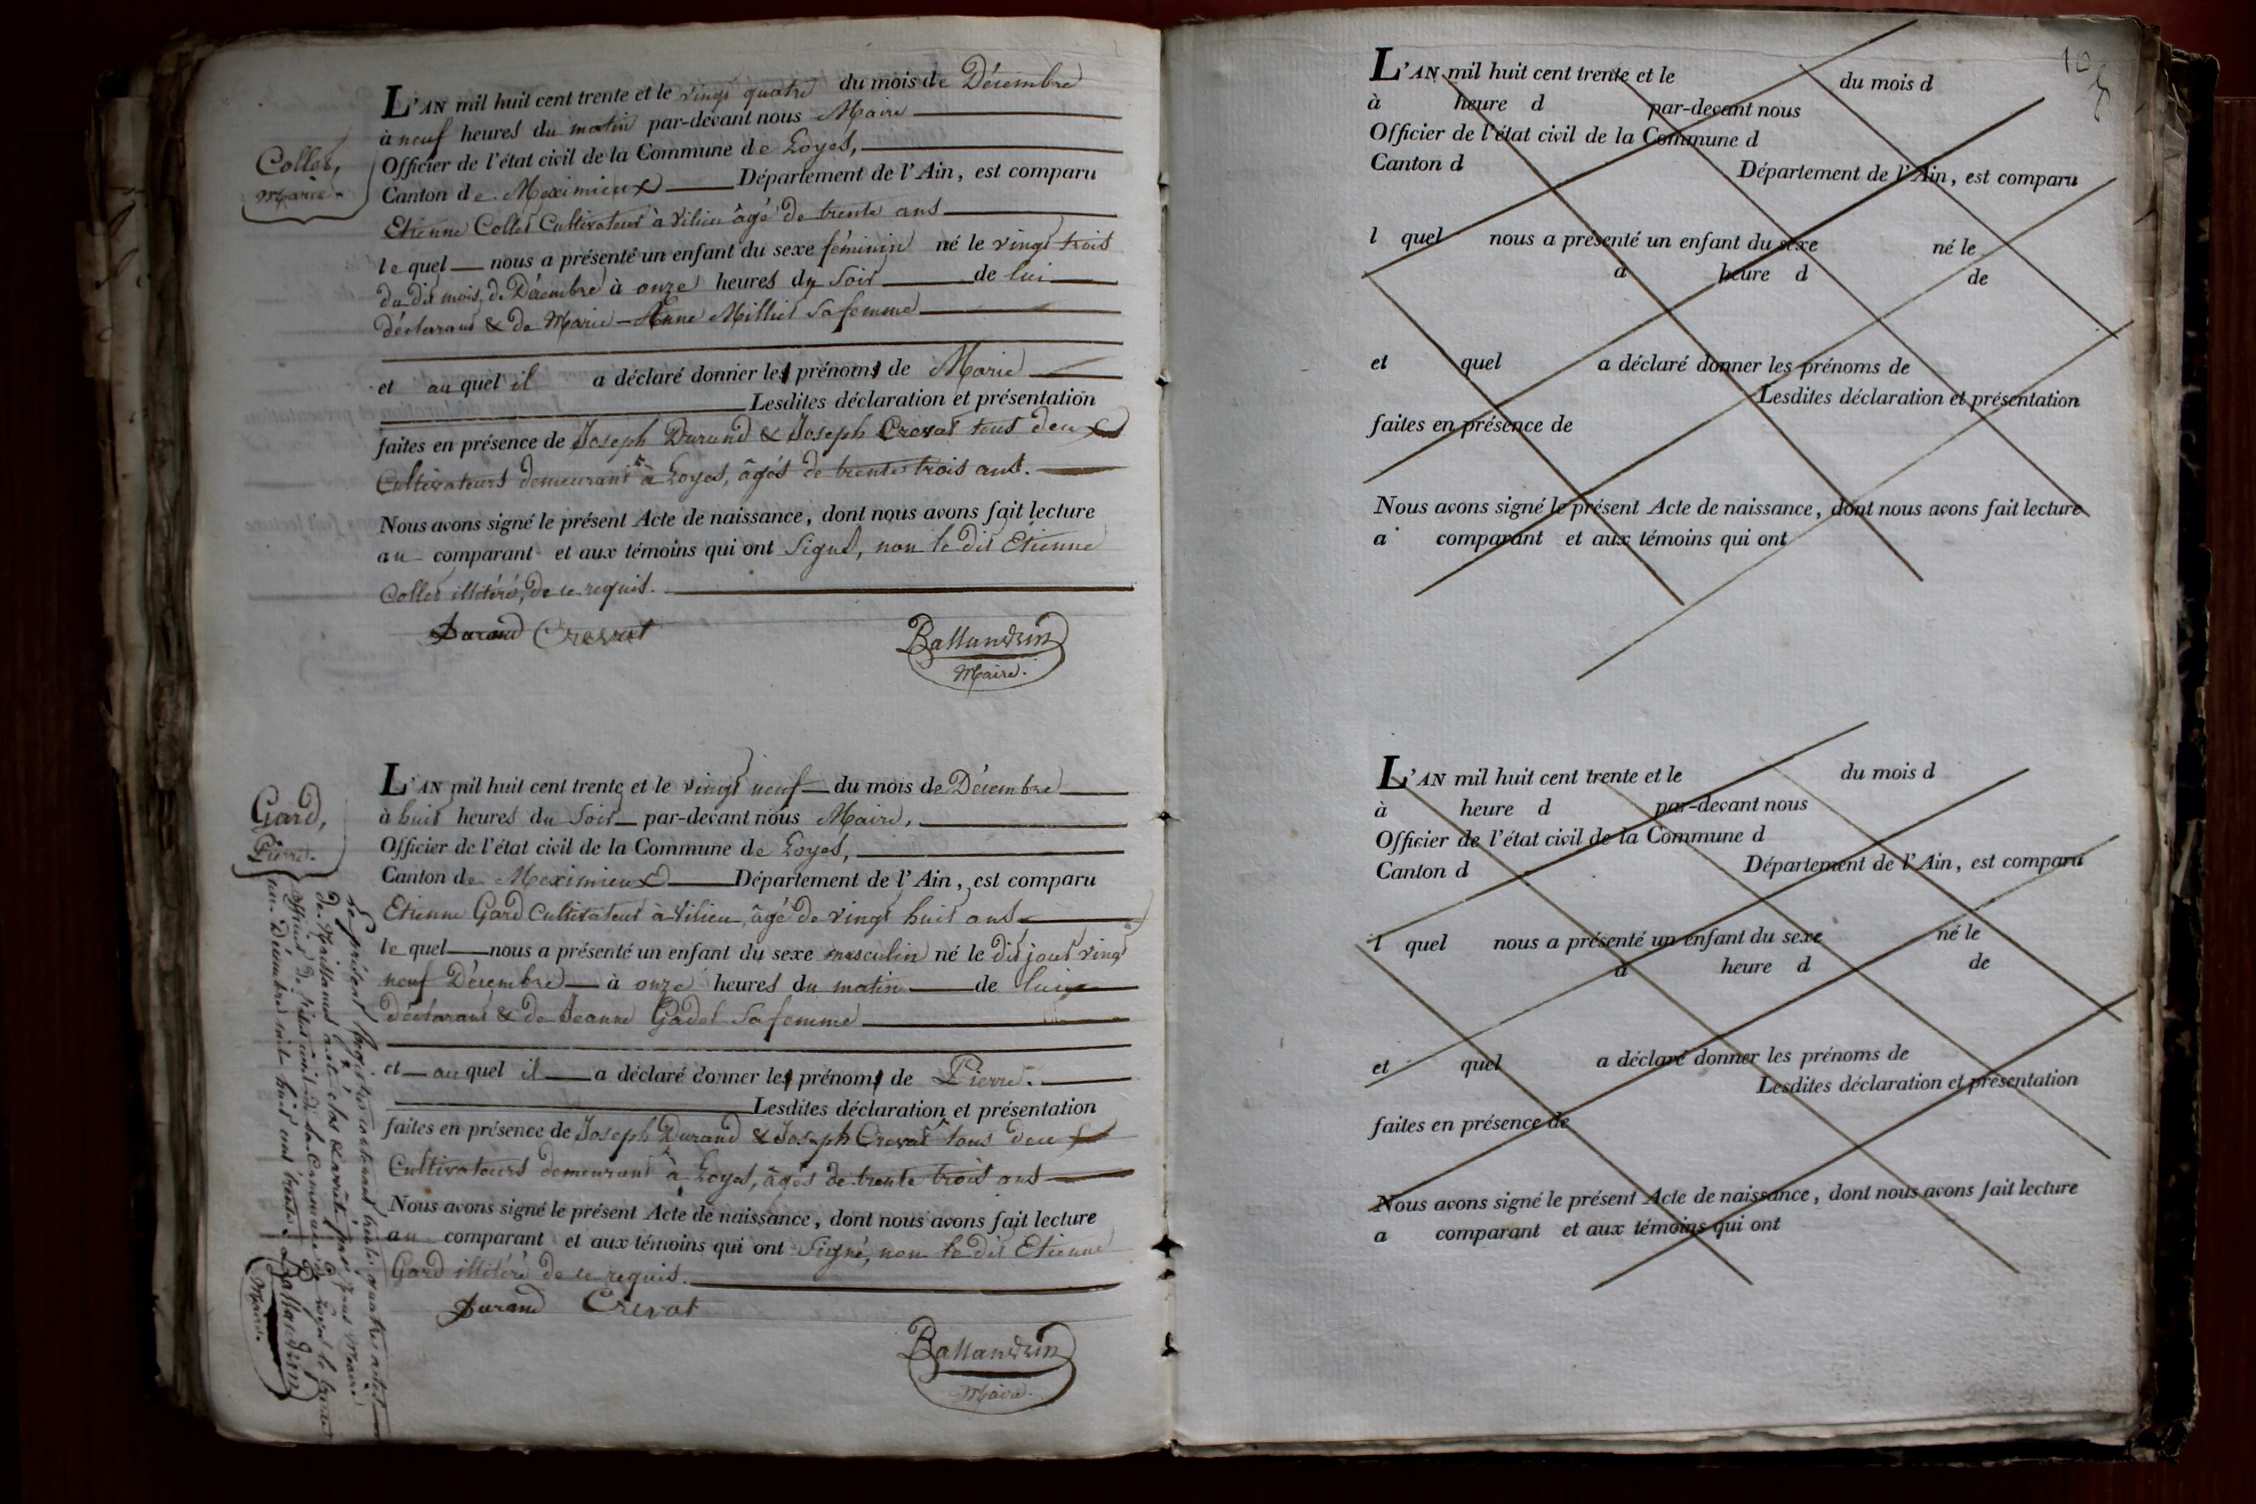 Collet,
Marie.
L'AN mil huit cent trente et le vingt quatre du mois de Décembre
à neuf heures du matin par-devant nous Maire
Officier de l'état civil de la Commune de Loyes,
Canton de Meximieux Département de l'Ain, est comparu
Etienne Collet Cultivateur à Vilieu âgé de trente ans
le quel nous a présenté un enfant du sexe féminin né le vingt trois
du dit mois de Décembre à onze heures du soir de lui
déclarant & de Marie-Anne Milliet sa femme
et au quel il a déclaré donner les prénoms de Marie
Lesdites déclaration et présentation
faites en présence de Joseph Durand & Joseph Crevat tous deux
Cultivateurs demeurant à Loyes, âgés de trente trois ans.
Nous avons signé le présent Acte de naissance, dont nous avons fait lecture
au comparant et aux témoins qui ont signé, non le dit Etienne
Collet illitéré, de ce requis.
Durand Crevat
Ballandrin
Maire.
Gard,
Pierre.
L'AN mil huit cent trente et le vingt neuf du mois de Décembre
à huit heures du soir par-devant nous Maire,
Officier de l'état civil de la Commune de Loyes,
Canton de Meximieux Département de l'Ain, est comparu
Etienne Gard Cultivateur à Vilieu, âgé de vingt huit ans
le quel nous a présenté un enfant du sexe masculin né le dit jour vingt
neuf Décembre à onze heures du matin de lui
déclarant & de Jeanne Gadel sa femme
et au quel il a déclaré donner les prénoms de Pierre.
Lesdites déclaration et présentation
faites en présence de Joseph Durand & Joseph Crevat tous deux
Cultivateurs demeurant à Loyes, âgés de trente trois ans
Nous avons signé le présent Acte de naissance, dont nous avons fait lecture
au comparant et aux témoins qui ont signé, non le dit Etienne
Gard illitéré de ce requis.
Durand Crevat
Ballandrin
Maire.
Le présent Registre contenant trente quatre actes
de Naissances a été clos & arrêté par nous Maire
officier de l'état civil de la Commune de Loyes le trente
un Décembre mil huit cent trente. Ballandrin
Maire.
10
L'AN mil huit cent trente et le du mois d
à heure d par-devant nous
Officier de l'état civil de la Commune d
Canton d Département de l'Ain, est comparu
l quel nous a présenté un enfant du sexe né le
à heure d de
et quel a déclaré donner les prénoms de
Lesdites déclaration et présentation
faites en présence de
Nous avons signé le présent Acte de naissance, dont nous avons fait lecture
a comparant et aux témoins qui ont
L'AN mil huit cent trente et le du mois d
à heure d par-devant nous
Officier de l'état civil de la Commune d
Canton d Département de l'Ain, est comparu
l quel nous a présenté un enfant du sexe né le
à heure d de
et quel a déclaré donner les prénoms de
Lesdites déclaration et présentation
faites en présence de
Nous avons signé le présent Acte de naissance, dont nous avons fait lecture
a comparant et aux témoins qui ont